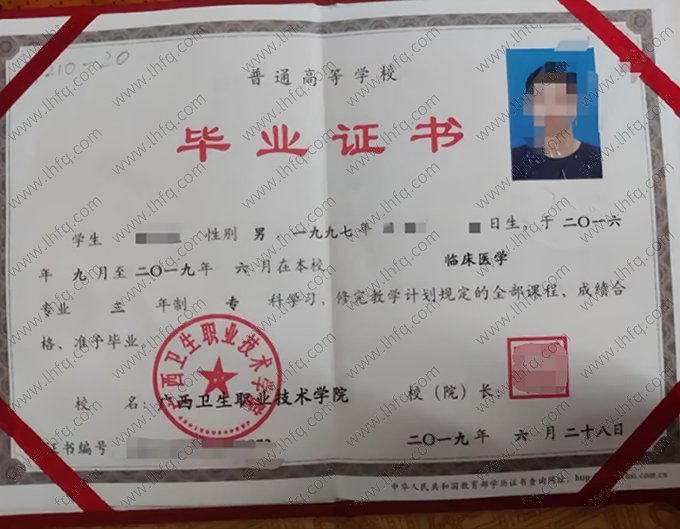 210 20
普通高等学校
毕业证书
学生 性别 男，一九九七年 日生，于二〇一六
年 九 月至 二〇一九年 六 月在本校 临床医学
专业 三 年制 专 科学习，修完教学计划规定的全部课程，成绩合
格，准予毕业。
广西卫生职业技术学院
校 名：广西卫生职业技术学院 校（院）长：
证书编号 二〇一九年 六 月二十八日
中华人民共和国教育部学历证书查询网址：http
www.lhfq.com